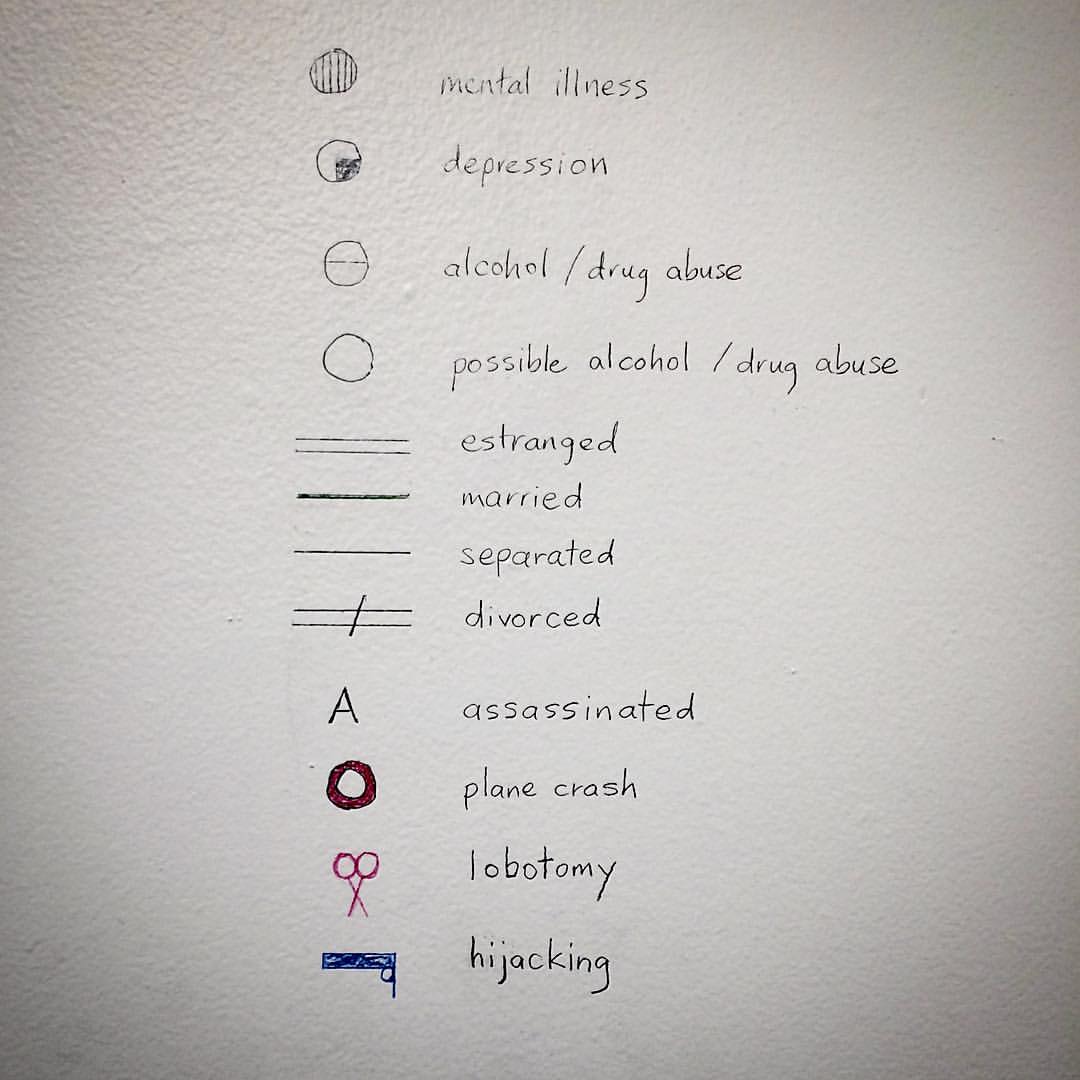 mental illness
depression
alcohol / drug abuse
possible alcohol / drug abuse
estranged
married
separated
divorced
A assassinated
plane crash
lobotomy
hijacking